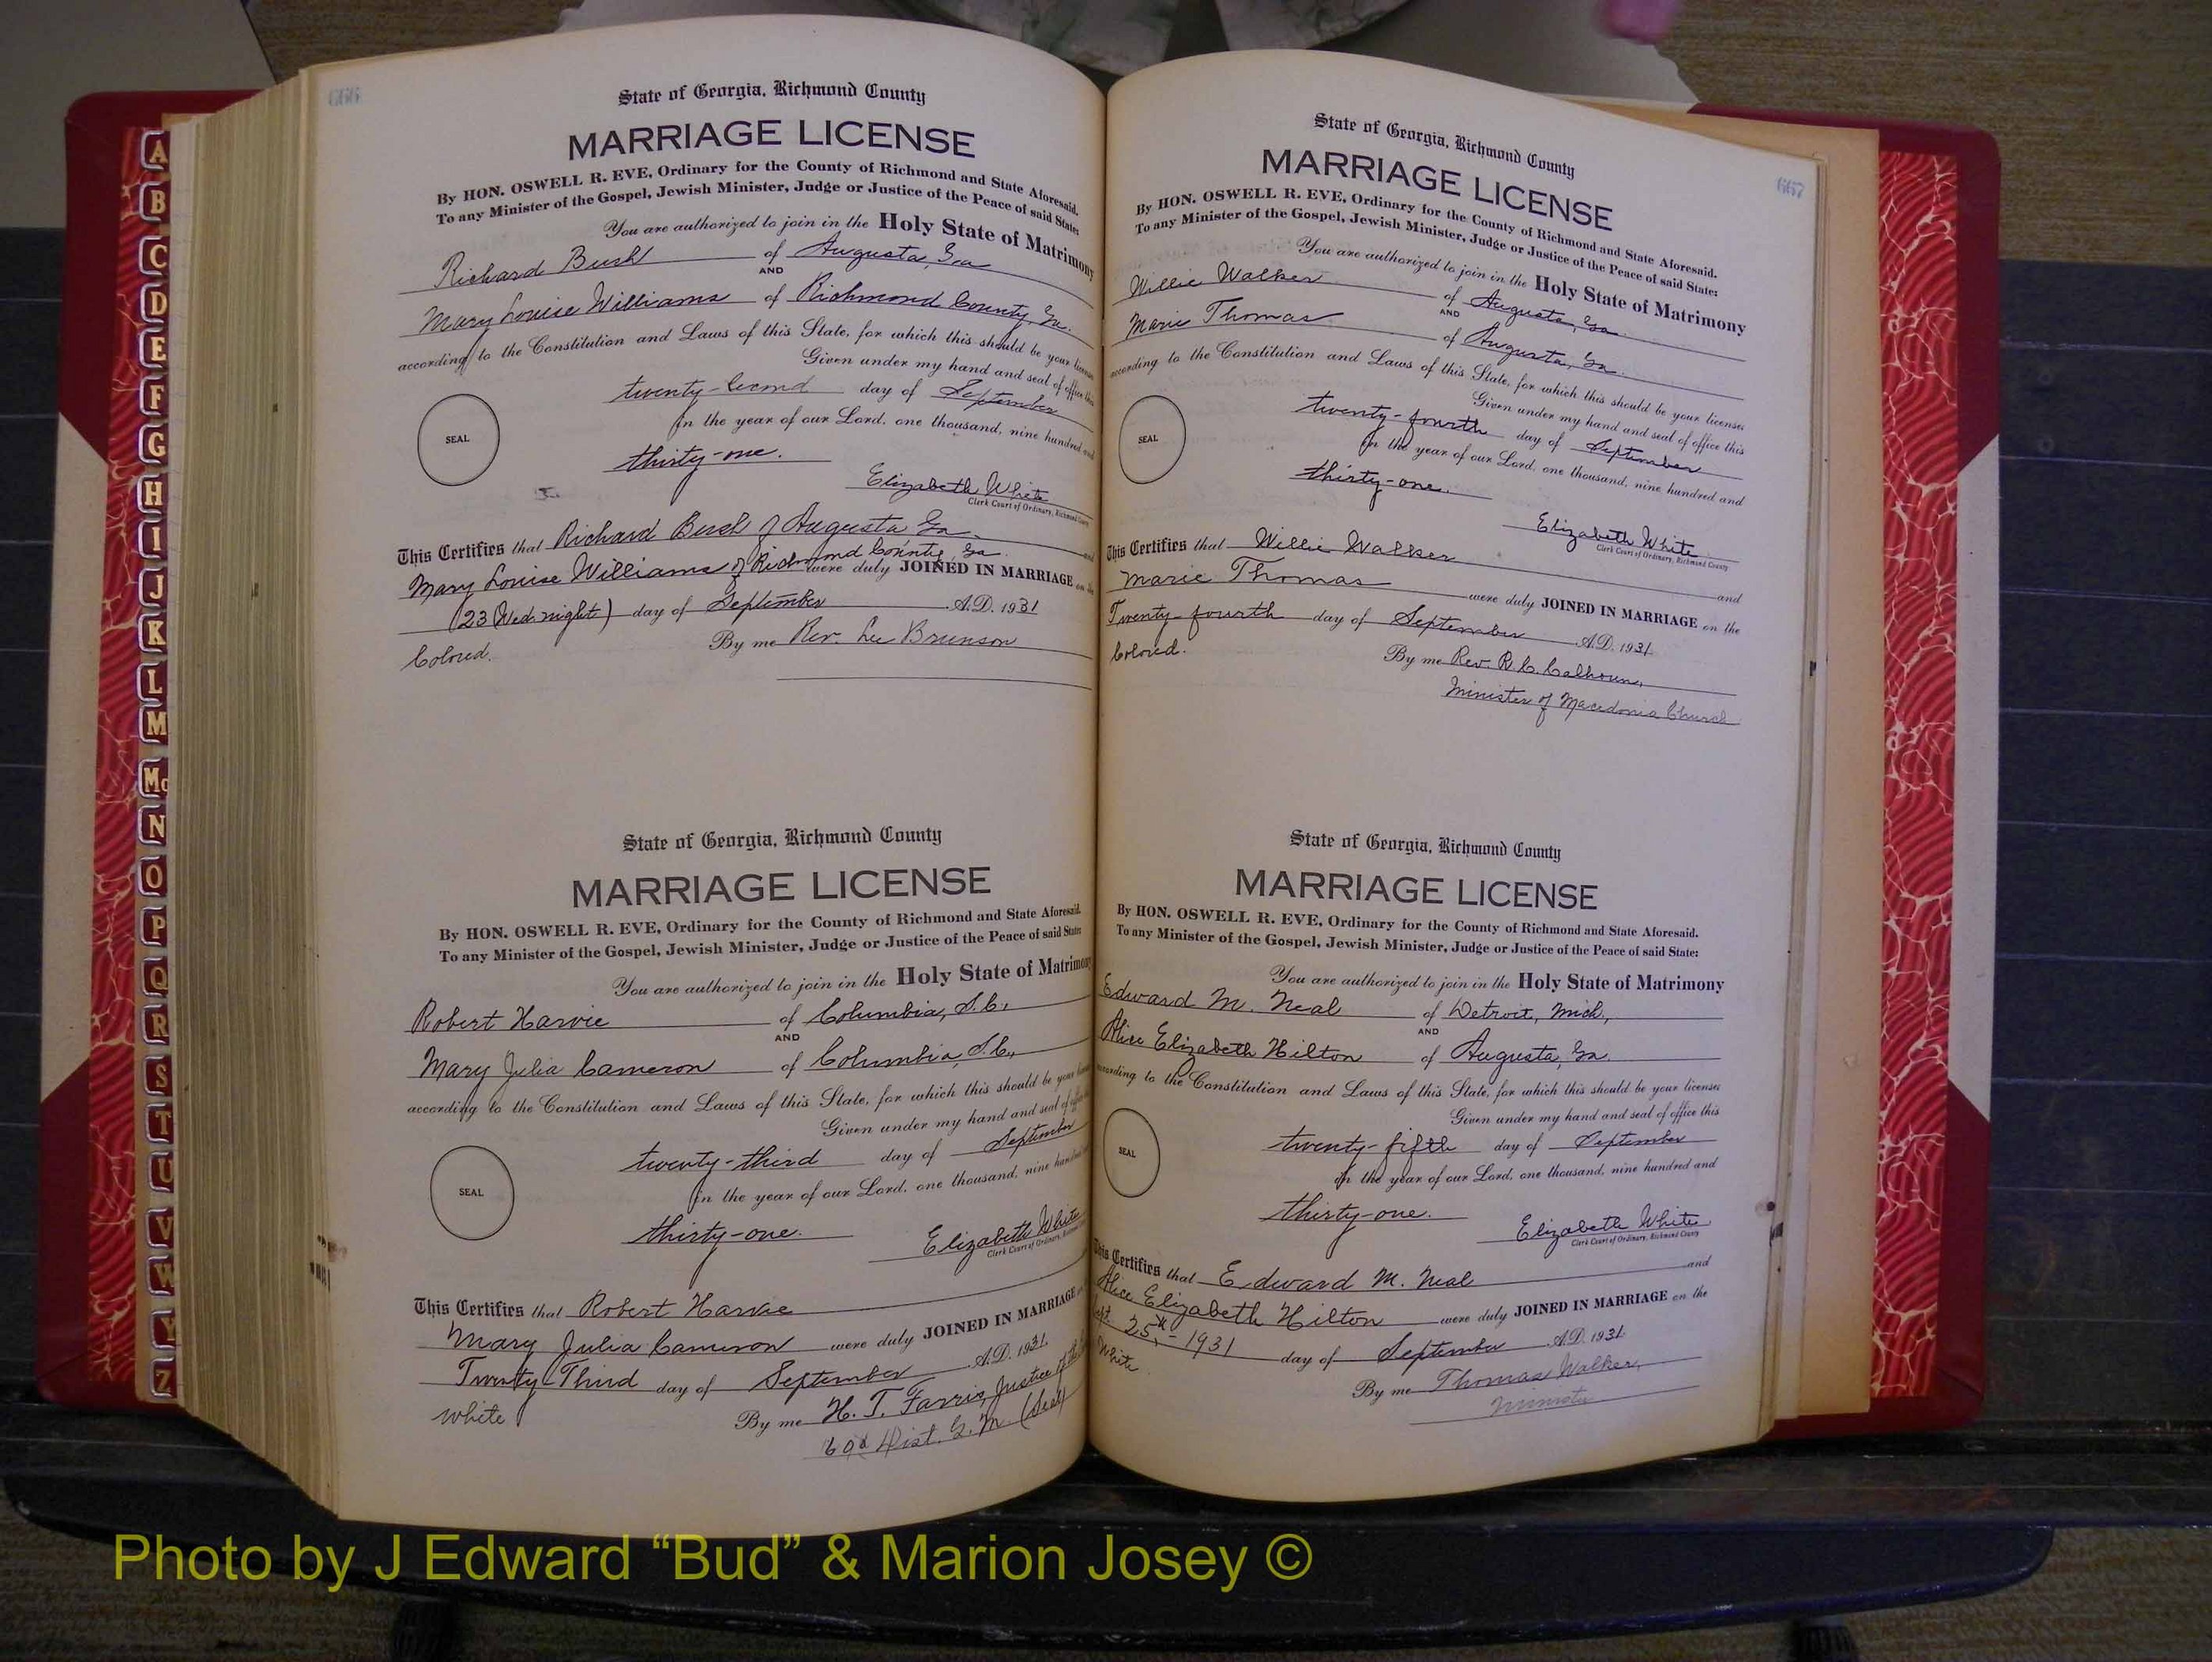 666
State of Georgia, Richmond County
MARRIAGE LICENSE
By HON. OSWELL R. EVE, Ordinary for the County of Richmond and State Aforesaid.
To any Minister of the Gospel, Jewish Minister, Judge or Justice of the Peace of said State:
You are authorized to join in the Holy State of Matrimony
Richard Bush of Augusta, Ga
AND
Mary Louise Williams of Richmond County, Ga.
according to the Constitution and Laws of this State, for which this should be your license
Given under my hand and seal of office this
twenty-second day of September
SEAL
In the year of our Lord, one thousand, nine hundred and
thirty-one.
Elizabeth White
Clerk Court of Ordinary, Richmond County
This Certifies that Richard Bush of Augusta Ga. and
Mary Louise Williams of Richmond County, Ga were duly JOINED IN MARRIAGE on the
(23 Wed. night) day of September A.D. 1931
By me Rev. Lee Brunson
Colored.
State of Georgia, Richmond County
MARRIAGE LICENSE
By HON. OSWELL R. EVE, Ordinary for the County of Richmond and State Aforesaid.
To any Minister of the Gospel, Jewish Minister, Judge or Justice of the Peace of said State:
You are authorized to join in the Holy State of Matrimony
Robert Harvie of Columbia, S.C.,
AND
Mary Julia Cameron of Columbia, S.C.,
according to the Constitution and Laws of this State, for which this should be your license
Given under my hand and seal of office
twenty-third day of September
SEAL
In the year of our Lord, one thousand, nine hundred
thirty-one.
Elizabeth White
Clerk Court of Ordinary, Richmond
This Certifies that Robert Harvie
Mary Julia Cameron were duly JOINED IN MARRIAGE
Twenty-Third day of September A.D. 1931.
By me H. T. Farris, Justice of the
white
69d Dist. G. M. (Seal)
667
State of Georgia, Richmond County
MARRIAGE LICENSE
By HON. OSWELL R. EVE, Ordinary for the County of Richmond and State Aforesaid.
To any Minister of the Gospel, Jewish Minister, Judge or Justice of the Peace of said State:
You are authorized to join in the Holy State of Matrimony
Willie Walker of Augusta, Ga.
AND
Marie Thomas of Augusta, Ga.
according to the Constitution and Laws of this State, for which this should be your license
Given under my hand and seal of office this
twenty-fourth day of September
SEAL
In the year of our Lord, one thousand, nine hundred and
thirty-one.
Elizabeth White
Clerk Court of Ordinary, Richmond County
This Certifies that Willie Walker and
Marie Thomas were duly JOINED IN MARRIAGE on the
Twenty-fourth day of September A.D. 1931.
By me Rev. R. C. Calhoun,
Colored.
Minister of Macedonia Church
State of Georgia, Richmond County
MARRIAGE LICENSE
By HON. OSWELL R. EVE, Ordinary for the County of Richmond and State Aforesaid.
To any Minister of the Gospel, Jewish Minister, Judge or Justice of the Peace of said State:
You are authorized to join in the Holy State of Matrimony
Edward M. Neal of Detroit, Mich.,
AND
Alice Elizabeth Hilton of Augusta, Ga.
according to the Constitution and Laws of this State, for which this should be your license
Given under my hand and seal of office this
twenty-fifth day of September
SEAL
In the year of our Lord, one thousand, nine hundred and
thirty-one.
Elizabeth White
Clerk Court of Ordinary, Richmond County
This Certifies that Edward M. Neal and
Alice Elizabeth Hilton were duly JOINED IN MARRIAGE on the
Sept. 25th - 1931 day of September A.D. 1931.
By me Thomas Walker,
White
Minister
A
B
C
D
E
F
G
H
I
J
K
L
M
Mc
N
O
P
Q
R
S
T
U
V
W
Y
Z
Photo by J Edward “Bud” & Marion Josey ©